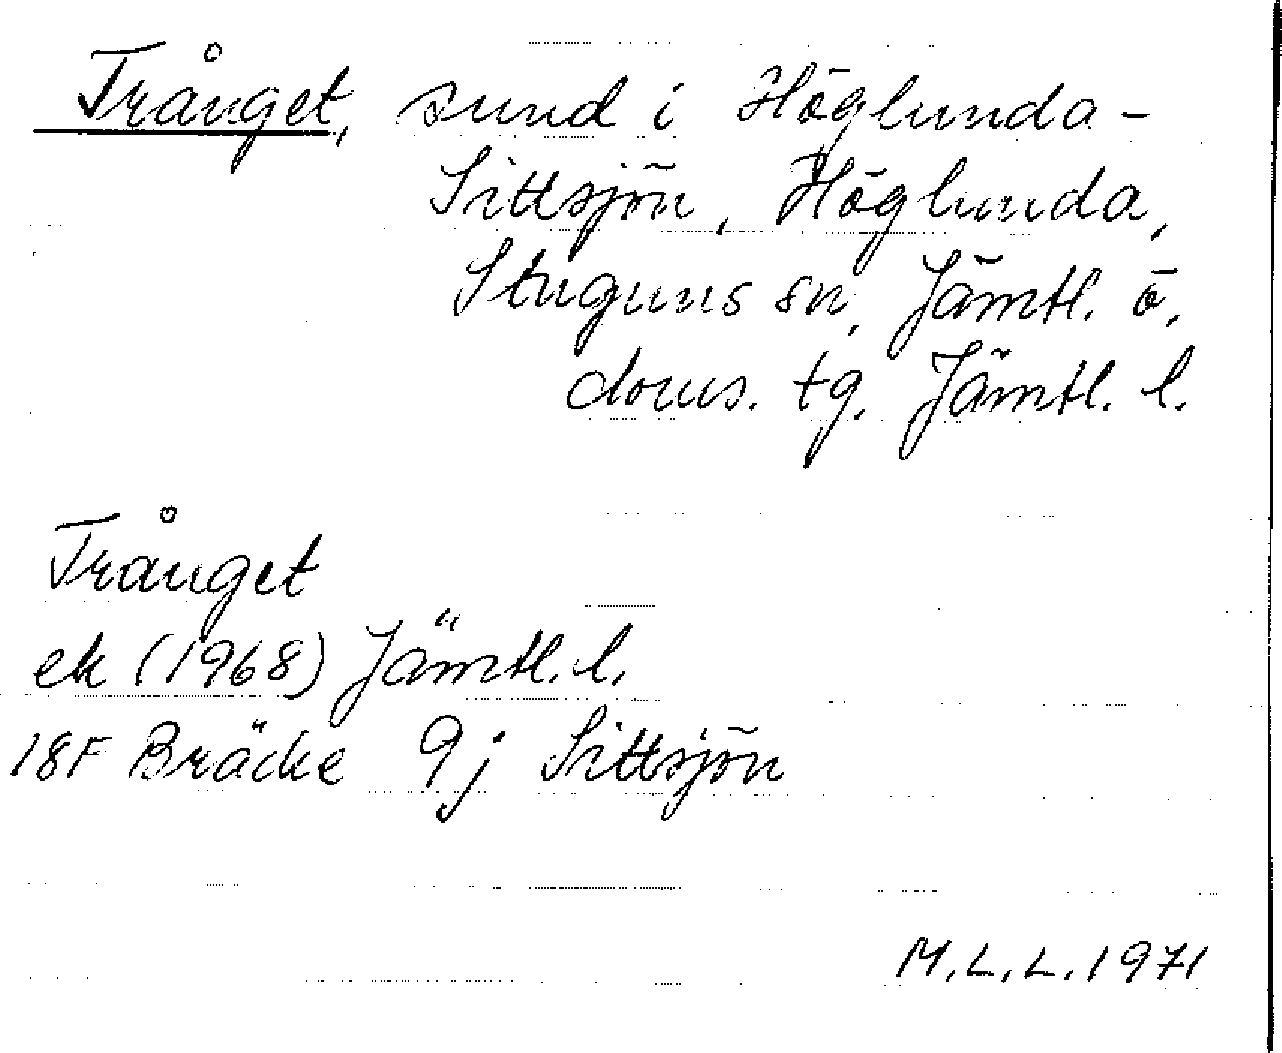 Trånget, sund i Höglunda-
Sittsjön, Höglunda,
Stuguns sn, Jämtl. ö.
doms. tg. Jämtl. l.
Trånget
ek (1968) Jämtl. l.
18F Bräcke 9j Sittsjön
M.L.L. 1971